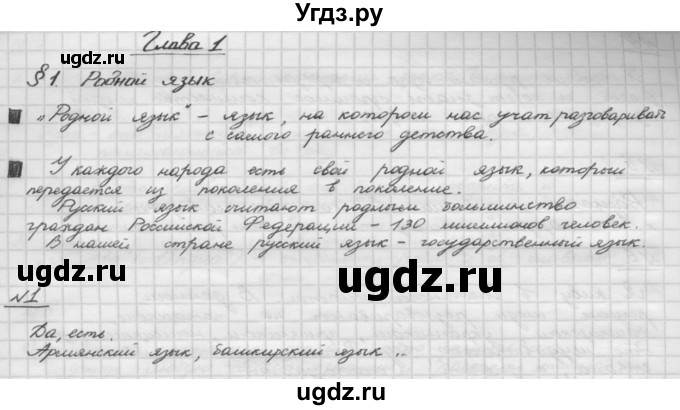 Угдз.ру
Глава 1
§1. Родной язык
„Родной язык" – язык, на котором нас учат разговаривать
с самого раннего детства.
У каждого народа есть свой родной язык, который
передается из поколения в поколение.
Русский язык считают родным большинство
граждан Российской Федерации – 130 миллионов человек.
В нашей стране русский язык – государственный язык.
№1
Да, есть.
Армянский язык, башкирский язык ..
ugdz.ru
ugdz.ru
ugdz.ru
ugdz.ru
ugdz.ru
ugdz.ru
ugdz.ru